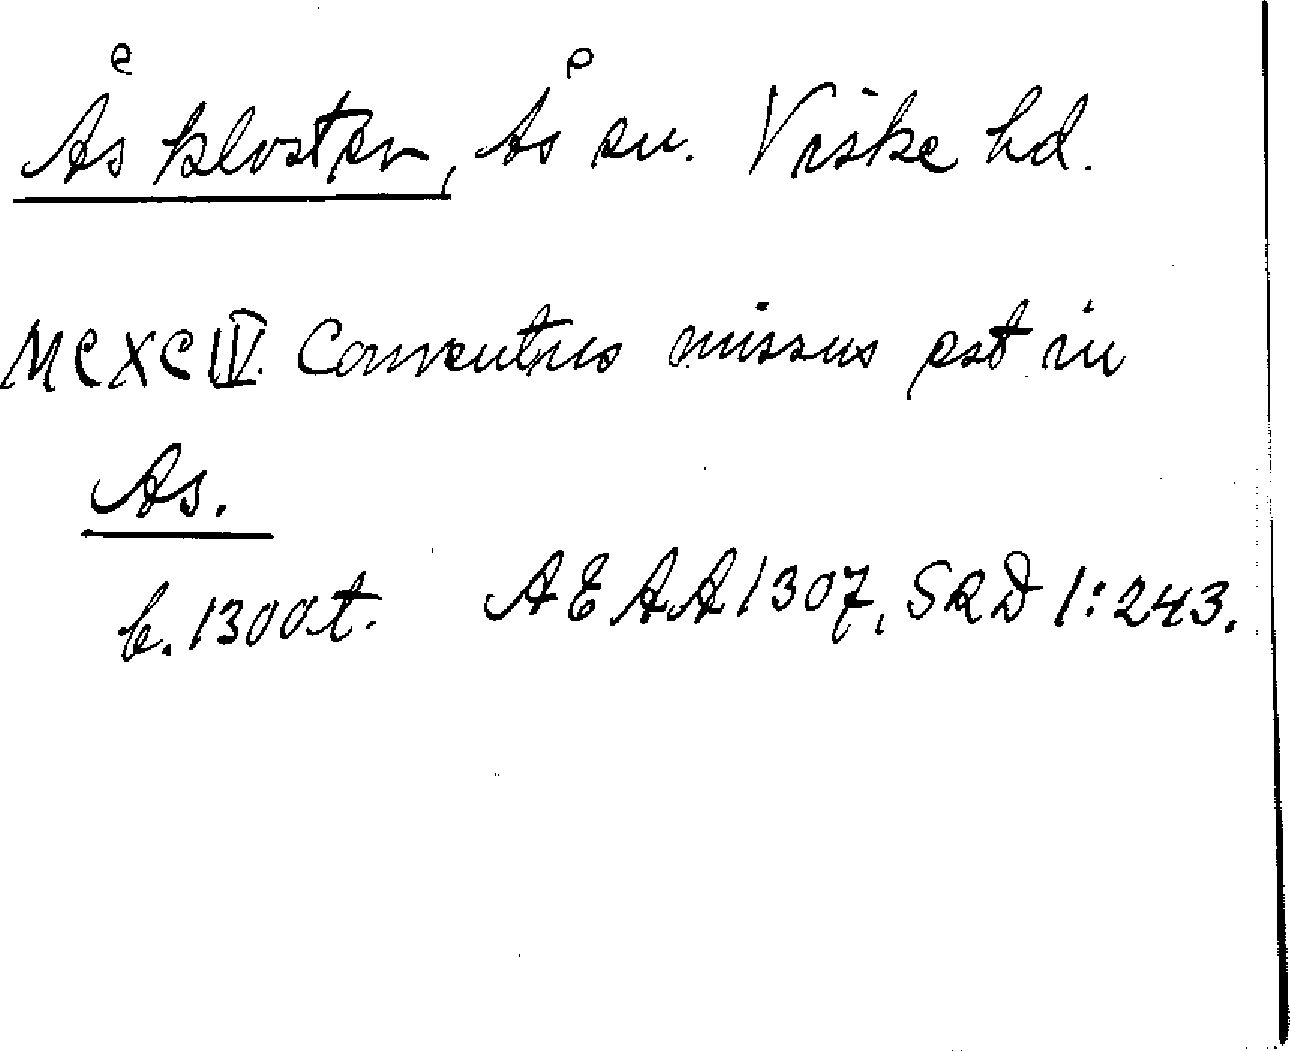 Ås kloster, Ås sn. Viske hd.
MCXCIV. Conventus missus est in
As.
b. 1300t. AEAA 1307, SRD 1:243.